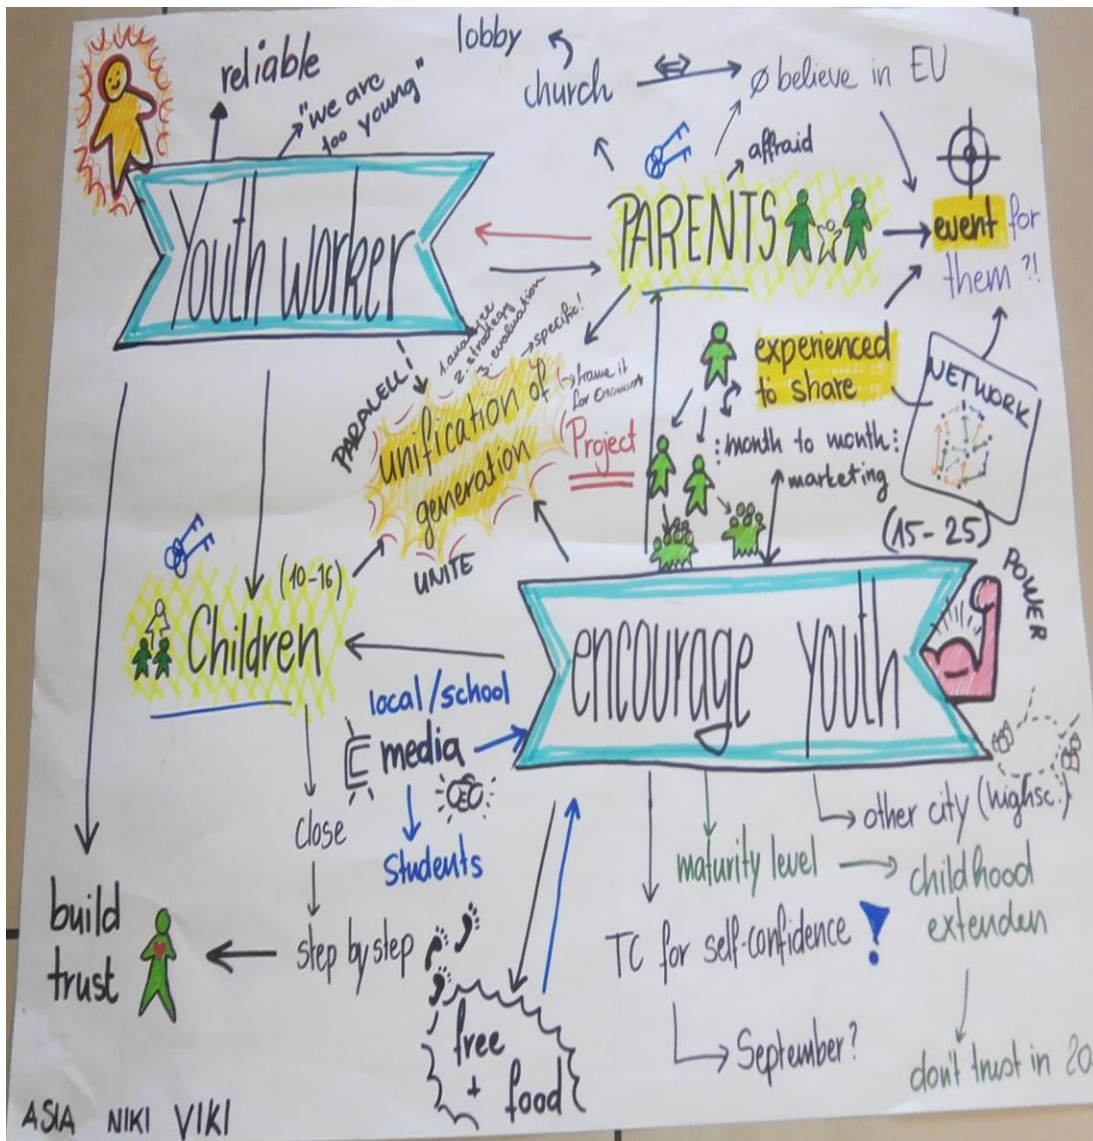 lobby
church
Ø believe in EU
reliable
"we are
too young"
affraid
Youth worker
PARENTS
event for
them ?!
1. analyze
2. strategy
3. evaluation
→ specific!
PARALELL!
unification of
generation
UNITE
frame it
for
Project
experienced
to share
NETWORK
: month to month :
marketing
(15-25)
POWER
(10-16)
Children
encourage youth
local/school
media
Students
close
step by step
build
trust
free
+ food
other city (highsc.)
maturity level
childhood
extenden
TC for self-confidence !
September?
don't trust in 20
ASIA NIKI VIKI